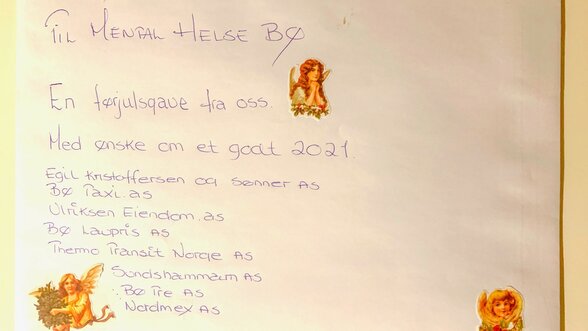 Til Mental Helse Bø
En førjulsgave fra oss.
Med ønske om et godt 2021.
Egil Kristoffersen og sønner AS
Bø Taxi.as
Ulriksen Eiendom.as
Bø Lavpris AS
Thermo Transit Norge AS
Sundshammarn AS
Bø Tre AS
Nordmex AS